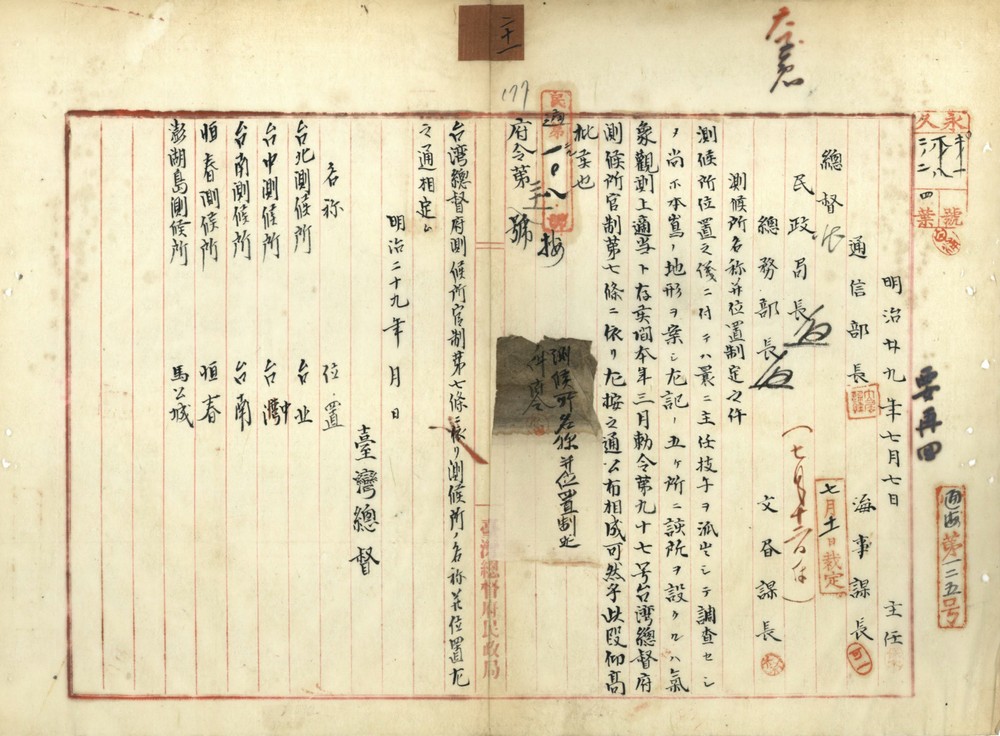 永久
號
四葉
明治廿九年七月七日
主任
要再回
通海第一二五号
通信部長
海事課長
總督
民政局長
總務部長
文書課長
七月十一日裁定
測候所名称并位置制定之件
測候所位置之儀ニ付テハ曩ニ主任技手ヲ派出シテ調查セシ
メ尚ホ本島ノ地形ヲ案シ左記ノ五ヶ所ニ該所ヲ設クルハ氣
象觀測上適当ト存候間本年三月勅令第九十七号台湾總督府
測候所官制第七條ニ依リ左按之通公布相成可然乎此段仰高
批候也
民通第一〇八二號
按
177
二十一
府令第二十一號
測候所名称并位置制定
件府令
台湾總督府測候所官制第七條ニ依リ測候所ノ名称并位置左
之通相定ム
明治二十九年 月 日
臺灣總督
名称 位置
台北測候所 台北
台中測候所 台灣中
台南測候所 台南
恒春測候所 恒春
澎湖島測候所 馬公城
臺灣總督府民政局